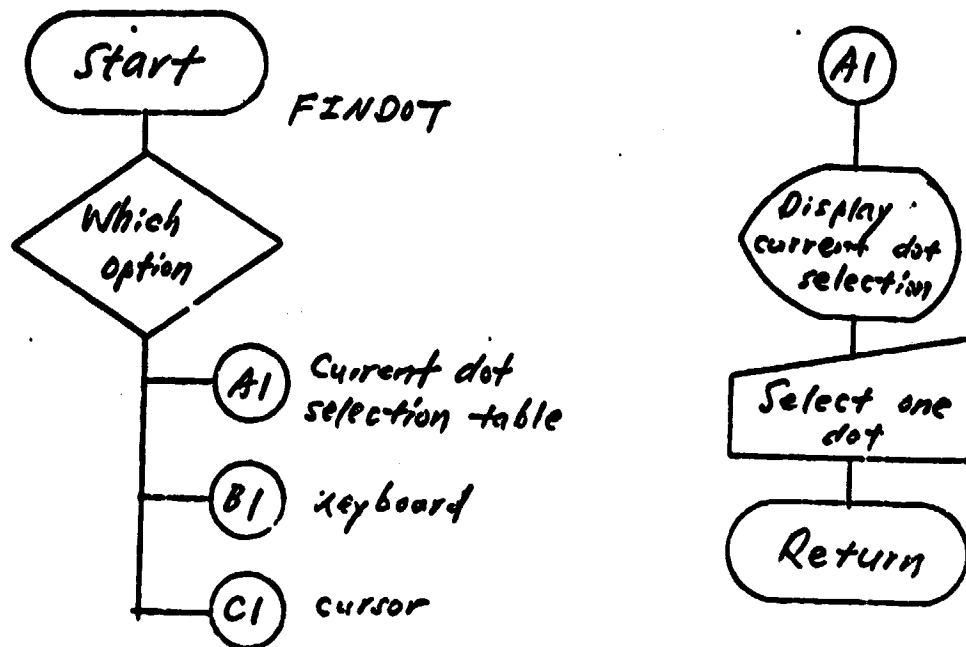 Start
FINDOT
Which
option
A1
Current dot
selection table
B1
keyboard
C1
cursor
A1
Display
current dot
selection
Select one
dot
Return